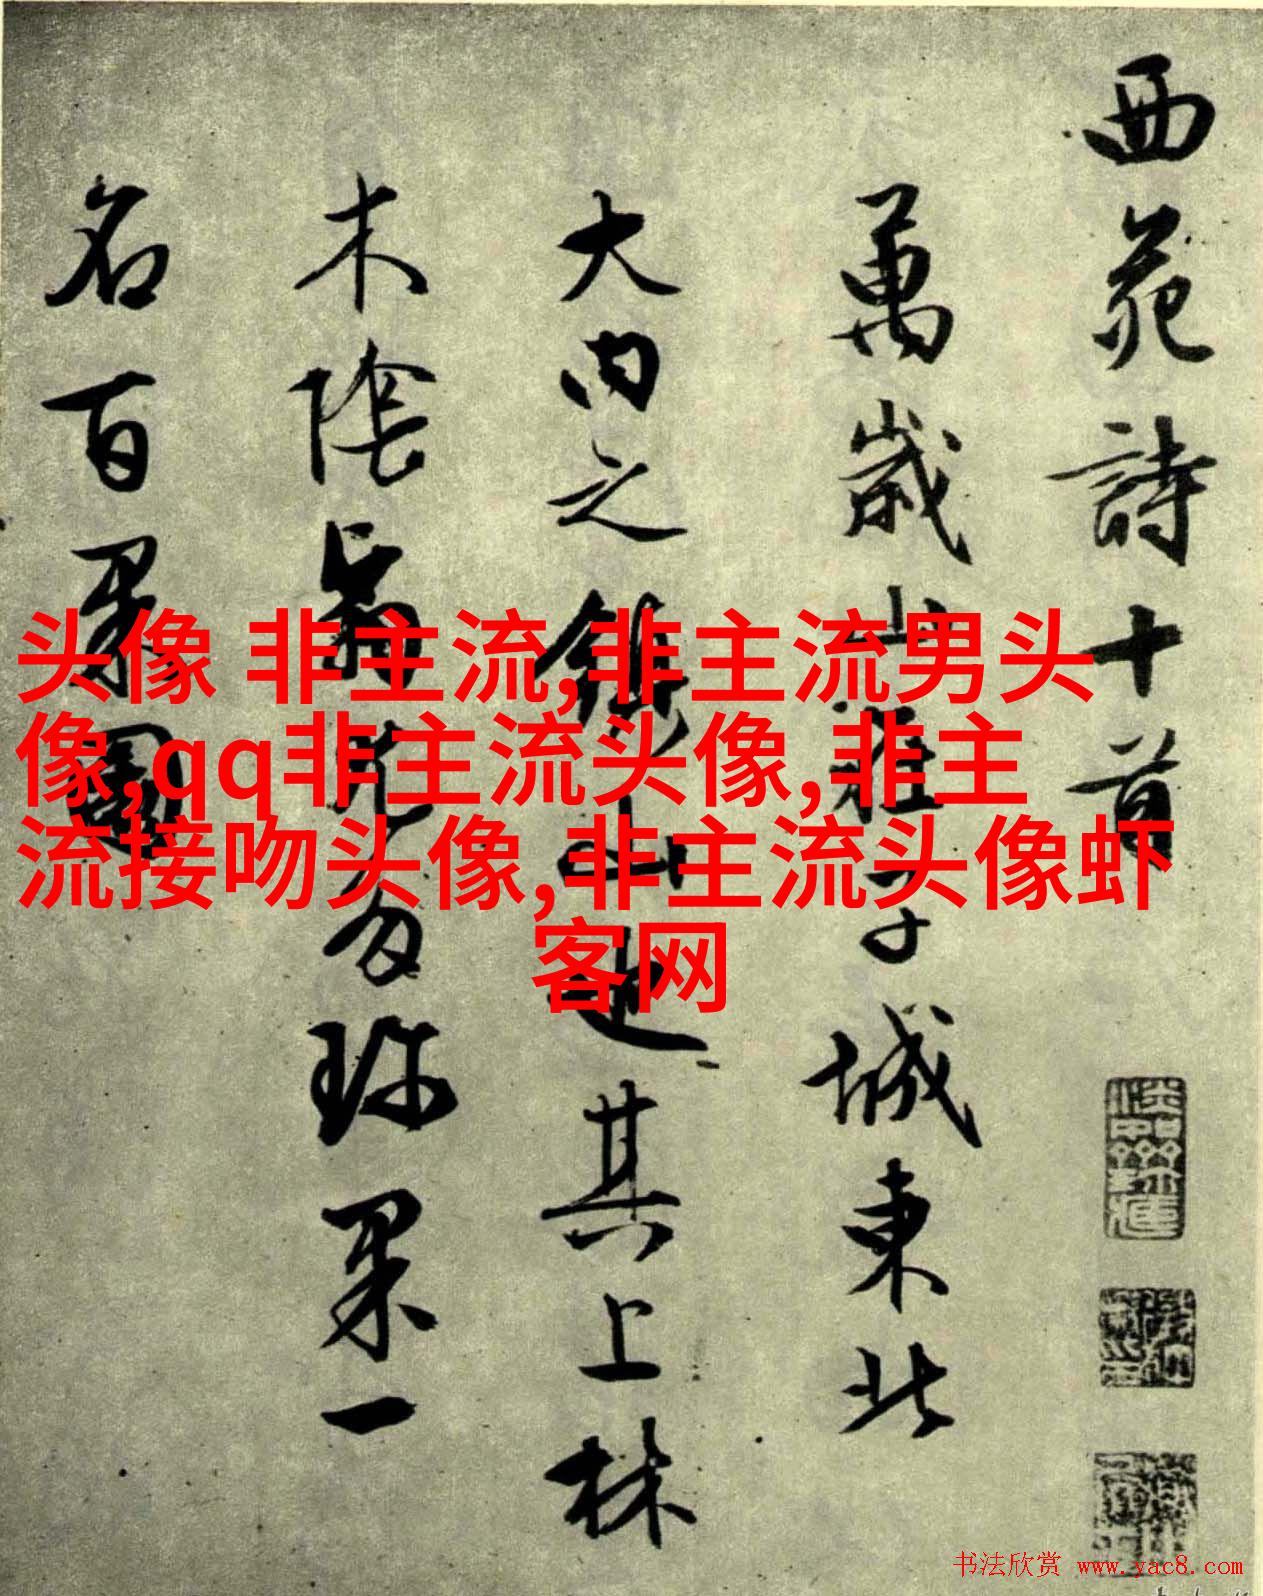 西苑詩十首
萬歲山在子城東北
大内之鎮山也其上林
木陰翳尤多珎果一
名百果園
头像 非主流,非主流男头
像,qq非主流头像,非主
流接吻头像,非主流头像虾
客网
书法欣赏 www.yac8.com